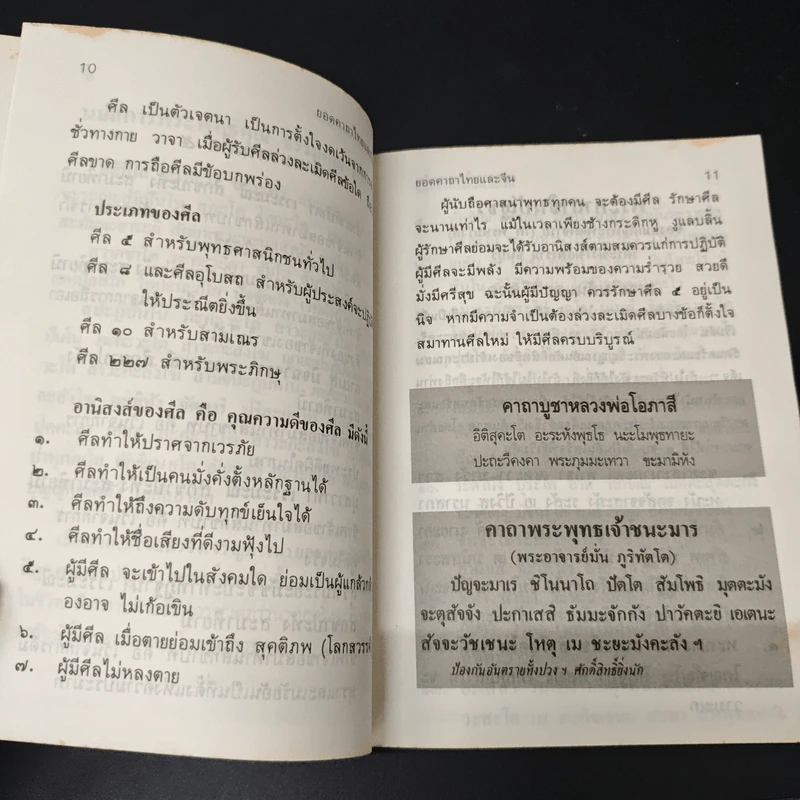 10
ยอดคาถาไทยแ
ศีล เป็นตัวเจตนา เป็นการตั้งใจงดเว้นจาก
ชั่วทางกาย วาจา เมื่อผู้รับศีลล่วงละเมิดศีลข้อใด
ศีลขาด การถือศีลมีข้อบกพร่อง
ประเภทของศีล
ศีล ๕ สำหรับพุทธศาสนิกชนทั่วไป
ศีล ๘ และศีลอุโบสถ สำหรับผู้ประสงค์จะ
ให้ประณีตยิ่งขึ้น
ศีล ๑๐ สำหรับสามเณร
ศีล ๒๒๗ สำหรับพระภิกษุ
อานิสงส์ของศีล คือ คุณความดีของศีล มีดังนี้
๑. ศีลทำให้ปราศจากเวรภัย
๒. ศีลทำให้เป็นคนมั่งคั่งตั้งหลักฐานได้
๓. ศีลทำให้ถึงความดับทุกข์เย็นใจได้
๔. ศีลทำให้ชื่อเสียงที่ดีงามฟุ้งไป
๕. ผู้มีศีล จะเข้าไปในสังคมใด ย่อมเป็นผู้แกล้วก
องอาจ ไม่เก้อเขิน
๖. ผู้มีศีล เมื่อตายย่อมเข้าถึง สุคติภพ (โลกสวรร
๗. ผู้มีศีลไม่หลงตาย
ยอดคาถาไทยและจีน 11
ผู้นับถือศาสนาพุทธทุกคน จะต้องมีศีล รักษาศีล
จะนานเท่าไร แม้ในเวลาเพียงช้างกระดิกหู งูแลบลิ้น
ผู้รักษาศีลย่อมจะได้รับอานิสงส์ตามสมควรแก่การปฏิบัติ
ผู้มีศีลจะมีพลัง มีความพร้อมของความร่ำรวย สวยดี
มั่งมีศรีสุข ฉะนั้นผู้มีปัญญา ควรรักษาศีล ๕ อยู่เป็น
นิจ หากมีความจำเป็นต้องล่วงละเมิดศีลบางข้อก็ตั้งใจ
สมาทานศีลใหม่ ให้มีศีลครบบริบูรณ์
คาถาบูชาหลวงพ่อโอภาสี
อิติสุคะโต อะระหังพุทโธ นะะโมพุทธายะ
ปะถะวีคงคา พระภุมมะเทวา ขะมามิหัง
คาถาพระพุทธเจ้าชนะมาร
(พระอาจารย์มั่น ภูริทัตโต)
ปัญจะมาเร ชิโนนาโถ ปัตโต สัมโพธิ มุตตะมัง
จะตุสัจจัง ปะกาเสสิ ธัมมะจักกัง ปาวัคตะยิ เอเตนะ
สัจจะวัชเชนะ โหตุ เม ชะยะมังคะลัง ฯ
ป้องกันอันตรายทั้งปวง ฯ ศักดิ์สิทธิ์ยิ่งนัก